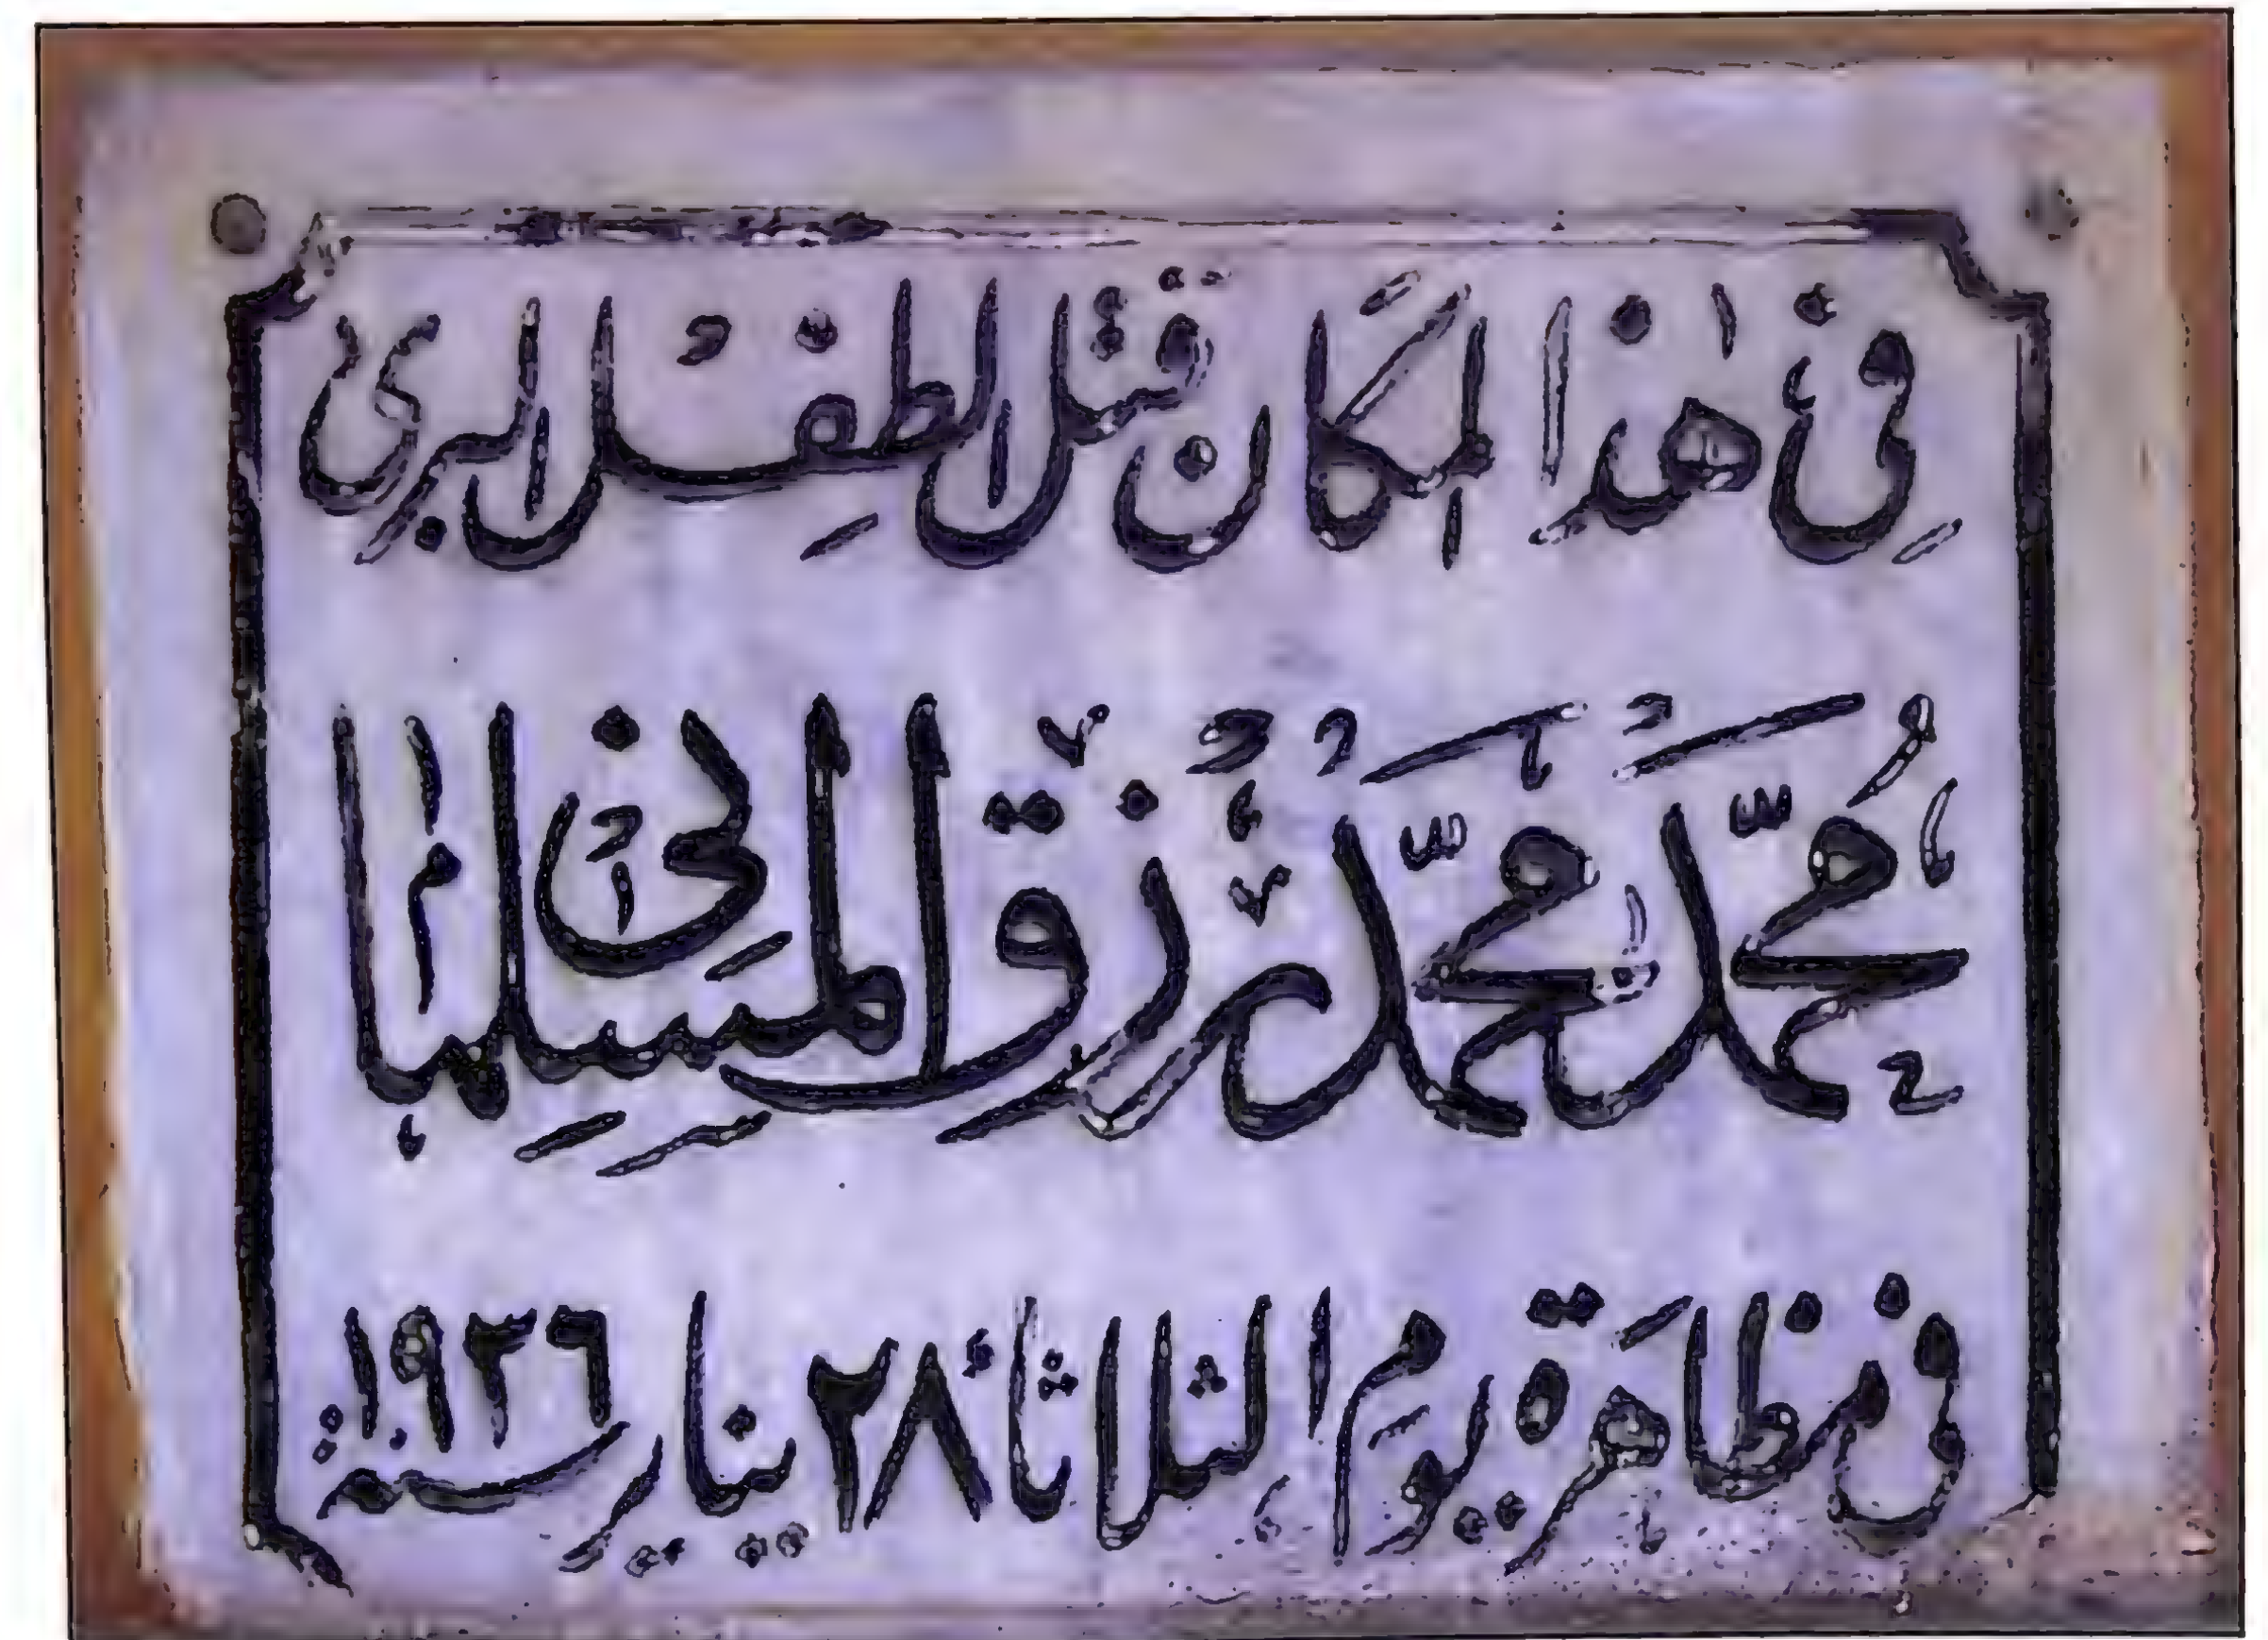 فى هذا المكان قتل الطفل البرى
محمد محمد رزق المسلمانى
فى مظاهرة يوم الثلاثاء ٢٨ يناير سنة ١٩٣٦